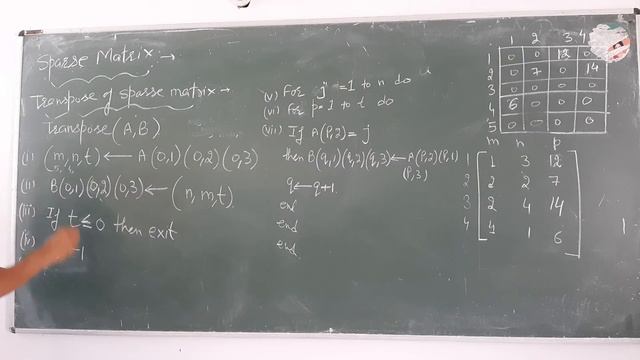 Sparse Matrix →
Transpose of sparse matrix →
Transpose (A,B)
(i) (m,n,t) ← A(0,1)(0,2)(0,3)
(ii) B(0,1)(0,2)(0,3) ← (n,m,t)
(iii) If t ≤ 0 then exit
(iv) 1
(v) For j =1 to n do
(vi) For p=1 to t do
(vii) If A(P,2) = j
then B(q,1)(q,2)(q,3) ← A(P,2)(P,1)
(P,3)
q ← q+1
end
end
end
1 2 3 4
1 0 0 12
2 0 7 0 14
3 0 0 0 0
4 6 0 0 0
5 0 0 0 0
m n p
1 1 3 12
2 2 2 7
3 2 4 14
4 4 1 6